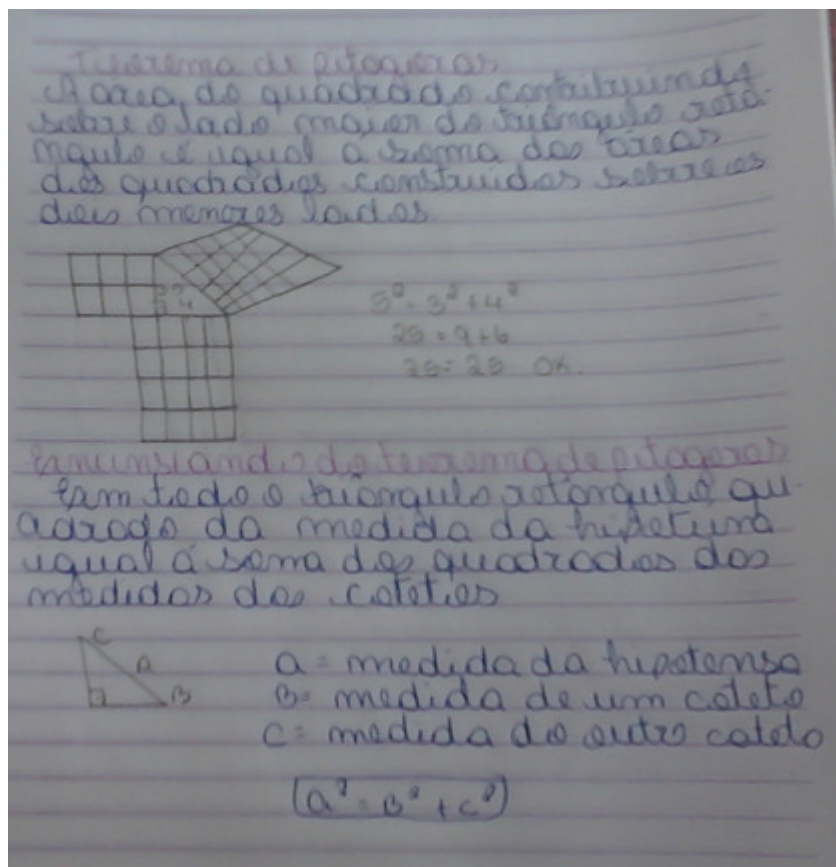 Teorema de pitagoras
A area do quadrado contribuindo
sobre o lado maior do triângulo retâ-
ngulo é igual a soma das áreas
dos quadrados construidos sobre os
dois menores lados
3 5
4
5² = 3² + 4²
25 = 9 + 6
25 = 25 OK.
Enunsiando do teorema de pitagoras
Em todo o triângulo retangulo qu-
adrado da medida da
igual á soma dos quadrados dos
medidas dos catetos
C
A
B
a = medida da hipotensa
B = medida de um cateto
C = medida do outro cateto
a² = B² + c²